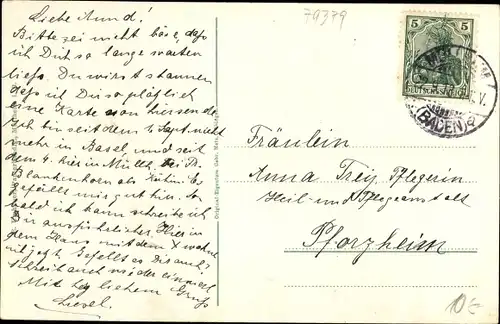 79379
Liebe Aund!
Bitte sei nicht böse, dass
ich Dich so lange warten
liess. Du wirst staunen
dass ich Du so plötzlich
eine Karte von hier sende
Ich bin seit dem 1. Sept. nicht
mehr in Basel und seit
dem 4. hier in Müllh. bei Dr.
Blankenhorn als Köchin. Es
gefällt mir gut hier. So
bald ich kann schreibe ich
Dir ausführlicher. Hier in
dem Haus mit dem X wohne
ich jetzt. Gefällt es Dir auch?
Schreib auch wieder einmal
Mit herzlichem Gruss
Liesel.
5 5
DEUTSCHES REICH
(BADEN)
Fräulein
Anna Treiz, Pflegerin
Heil- und Pflegeanstalt
Pforzheim
10€